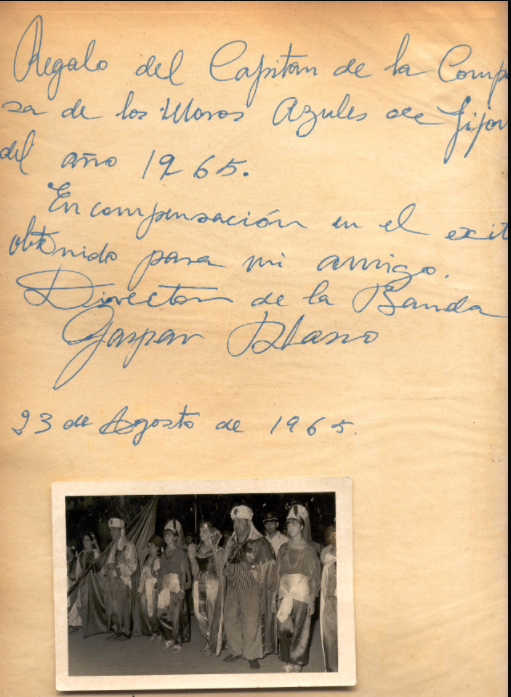 Regalo del Capitan de la Comp
sa de los Moros Azules de Jijon
del año 1965.
En compensación en el exit
obtenido para mi amigo.
Director de la Banda
Gaspar Blasco
23 de Agosto de 1965.